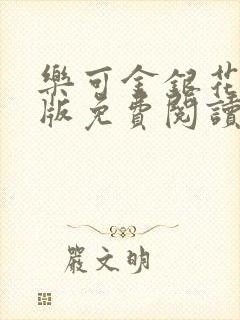 樂可金銀花
版免費閱讀
嚴文明